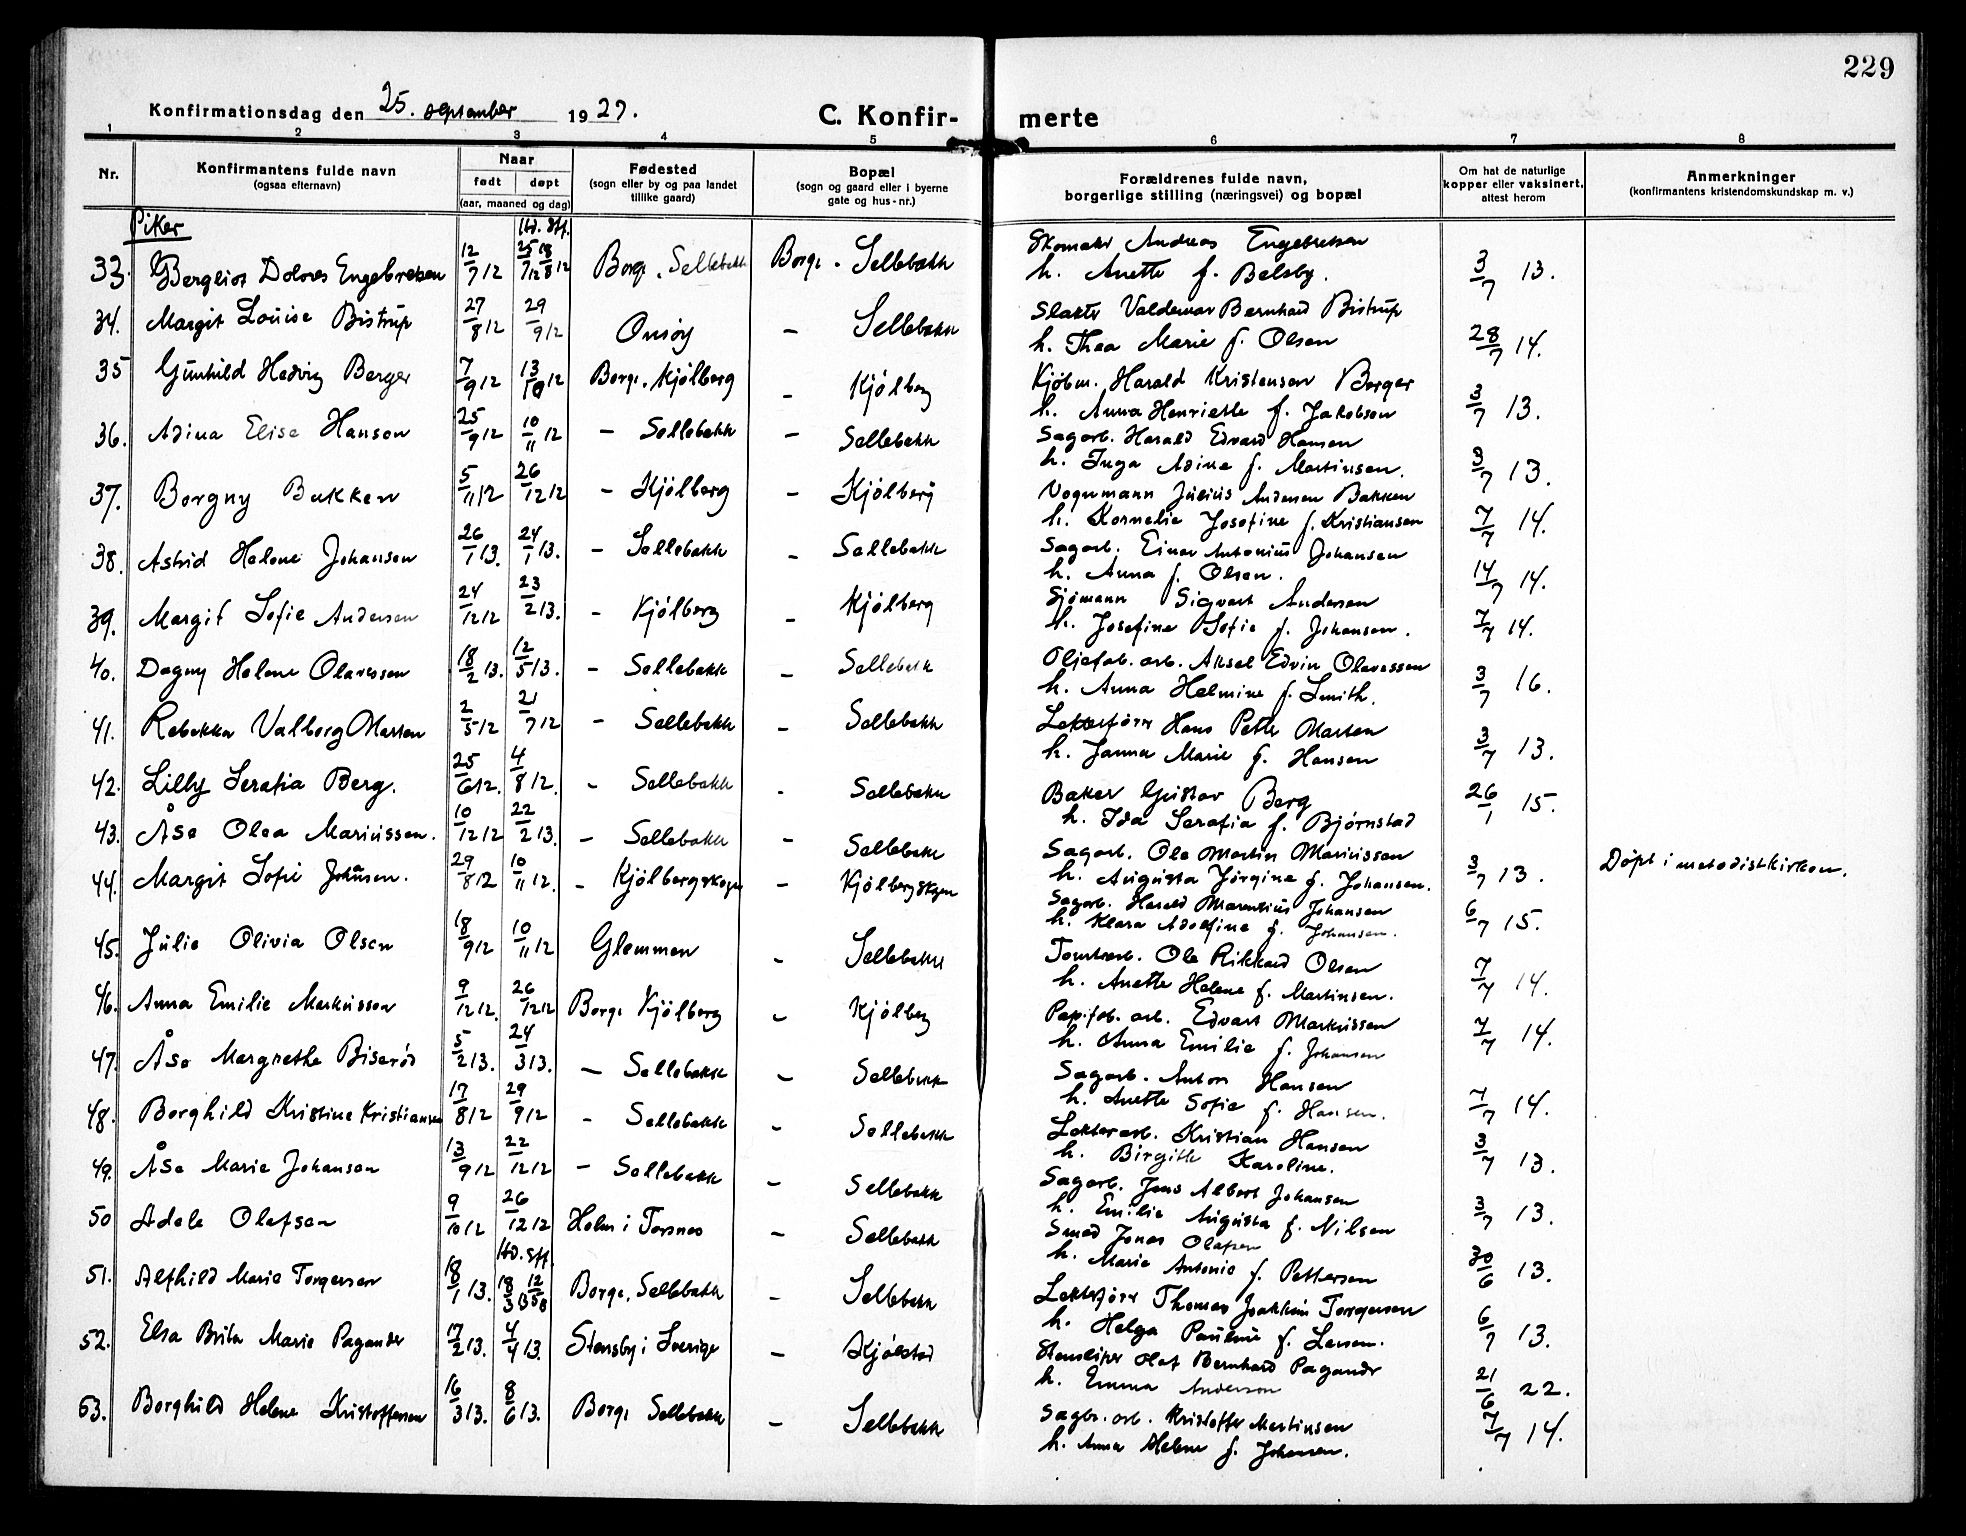 229
Konfirmationsdag den 25. september 1927.
C. Konfir- merte
1 2 3 4 5 6 7 8
Nr.
Konfirmantens fulde navn
(ogsaa efternavn)
Naar
født døpt
(aar, maaned og dag)
Fødested
(sogn eller by og paa landet
tillike gaard)
Bopæl
(sogn og gaard eller i byerne
gate og hus-nr.)
Forældrenes fulde navn,
borgerlige stilling (næringsvei) og bopæl
Om hat de naturlige
kopper eller vaksinert,
attest herom
Anmerkninger
(konfirmantens kristendomskundskap m. v.)
Piker
Hd. Stf.
33. Bergliot Dolores Engebretsen 12/7 12 25/7 12 18/8 12 Borge. Sellebakk Borge - Sellebakk Skomaker Andreas Engebretsen
h. Anette f. Belsby. 3/7 13.
34. Margit Louise Bistrup 27/8 12 29/9 12 Onsøy - Sellebakk Slakter Valdemar Bernhard Bistrup
h. Thea Marie f. Olsen 28/7 14.
35 Gunhild Hedvig Berger 7/9 12 13/10 12 Borge. Kjölberg - Kjölberg Kjöbm. Harald Kristensen Berger
h. Anna Henriette f. Jakobsen 3/7 13.
36. Adina Elise Hansen 25/9 12 10/11 12 - Sellebakk - Sellebakk Sagarb. Harald Edvard Hansen
h. Inga Adine f. Martinsen. 3/7 13.
37. Borgny Bakken 5/11 12 26/12 12 - Kjölberg - Kjölberg Vognmann Julius Andersen Bakken
h. Kornelie Josefine f. Kristiansen 7/7 14.
38. Astrid Helene Johansen 26/1 13. 24/1 13. - Sellebakk - Sellebakk Sagarb. Einar Antonius Johansen
h. Anna f. Olsen. 14/7 14.
39. Margit Sofie Andersen 24/12 12 23/2 13. - Kjölberg - Kjölberg Sjömann Sigvart Andersen
h. Josefine Sofie f. Johansen. 7/7 14.
40. Dagny Helene Olavessen 18/2 13. 12/5 13. - Sellebakk - Sellebakk Oljefab. arb. Aksel Edvin Olavessen
h. Anna Helmine f. Smith. 3/7 16.
41. Rebekka Valborg Marten 2/5 12 21/7 12 - Sellebakk - Sellebakk Lekterförer Hans Petter Marten
h. Janna Marie f. Hansen 3/7 13.
42. Lilly Serafia Berg. 25/6 12. 4/8 12. - Sellebakk - Sellebakk Baker Gustav Berg
h. Ida Serafia f. Bjørnstad 26/1 15.
43. Åse Olea Mariussen. 10/12 12 22/2 13. - Sellebakk - Sellebakk Sagarb. Ole Martin Mariussen
h. Augusta Jörgine f. Johansen. 3/7 13. Døpt i metodistkirken.
44. Margit Sofie Johansen. 29/8 12 10/11 12. - Kjölbergskogen - Kjölbergskogen Sagarb. Harald Marentius Johansen
h. Klara Adolfine f. Johansen. 6/7 15.
45. Julie Olivia Olsen 18/9 12 10/11 12 Glemmen - Sellebakk Tomtearb. Ole Rikkard Olsen
h. Anette Helene f. Martinsen. 7/7 14.
46. Anna Emilie Markussen 9/12 12. 26/12 12 Borge Kjölberg - Kjölberg Papirfab. arb. Edvart Markussen
h. Anna Emilie f. Johansen 7/7 14.
47. Åse Margrethe Biserød 5/2 13. 24/3 13. - Sellebakk - Sellebakk Sagarb. Anton Hansen
h. Anette Sofie f. Hansen. 7/7 14.
48. Borghild Kristine Kristiansen 17/8 12 29/9 12 - Sellebakk - Sellebakk Lekterarb. Kristian Hansen
h. Birgitte Karoline. 3/7 13.
49. Åse Marie Johansen 13/9 12 22/12 12 - Sellebakk - Sellebakk Sagarb. Jens Albert Johansen
h. Emilie Augusta f. Nilsen 3/7 13.
50 Adele Olafsen 9/10 12 26/12 12 Holm i Torsnes - Sellebakk Smed Jonas Olafsen
h. Marie Antonie f. Pettersen 30/6 13.
Hd. Stf.
51. Alfhild Marie Torgersen 18/1 13. 18/3 13 12/5 13 Borge. Sellebakk - Sellebakk Lekterförer Thomas Joakkim Torgersen
h. Helga Pauline f. Larsen. 6/7 13.
52. Elsa Brita Marie Pagander 17/2 13. 4/4 13. Stensby i Sverige - Kjölstad Stensliper Olaf Bernhard Pagander
h. Emma Anderson 21/6 22.
53. Borghild Helene Kristoffersen 16/3 13. 8/6 13. Borge Sellebakk - Sellebakk Sagbr. arb. Kristoffer Martinsen
h. Anna Helene f. Johansen. 7/7 14.